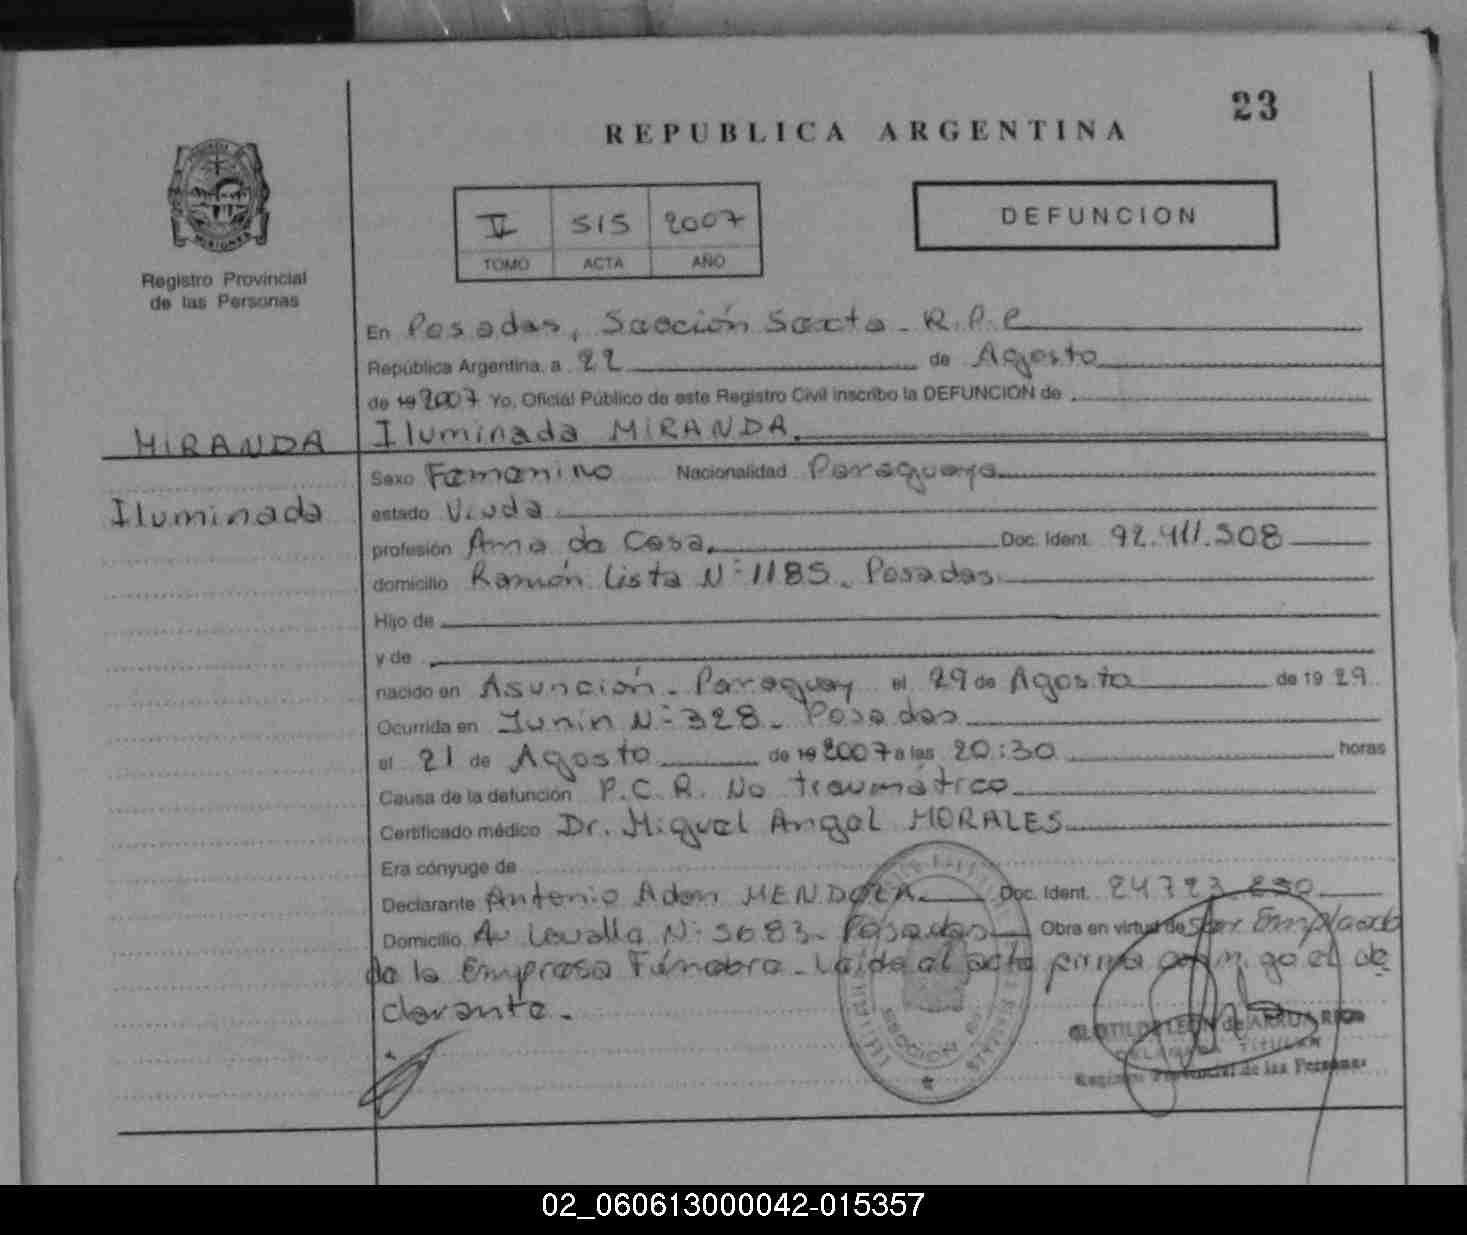 23
REPUBLICA ARGENTINA
II 515 2007
TOMO ACTA AÑO
DEFUNCION
Registro Provincial
de las Personas
En Posadas, Sección Sexta - R.P.P.
República Argentina, a 22 de Agosto
de 19 2007 Yo, Oficial Público de este Registro Civil inscribo la DEFUNCION de
MIRANDA Iluminada MIRANDA.
Sexo Femenino Nacionalidad Paraguaya
Iluminada estado Viuda
profesión Ama de Casa. Doc. Ident. 92.411.508
domicilio Ramón Lista Nº 1185. Posadas
Hijo de
y de
nacido en Asunción - Paraguay el 29 de Agosto de 19 29
Ocurrida en Junín Nº 328 - Posadas
el 21 de Agosto de 19 2007 a las 20:30 horas
Causa de la defunción P.C.R. No traumático
Certificado médico Dr. Miguel Angel MORALES
Era cónyuge de
Declarante Antonio Adan MENDOZA Doc. Ident. 24723
Domicilio Av Lavalle Nº 5683 - Posadas Obra en virtud de Ser Empleado
de la Empresa Fúnebre - Leída el acta firma conmigo el de
clarante.
SECCION
CLOTILDE LEON de ARRUA RIOS
TITULAR
Registro Provincial de las Personas
02_060613000042-015357